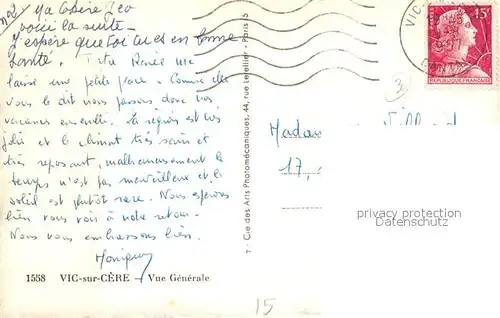 n°2 Ma Chère Léo
voici la suite -
J'espère que toi tu es en bonne
santé. Tata Renée me
laisse une petite place - Comme elle
vous le dit nous passons donc nos
vacances ensemble. La région est très
jolie et le climat très sain et
très reposant, malheureusement le
temps n'est pas merveilleux et le
soleil est plutôt rare. Nous espérons
bien vous voir à notre retour -
Nous vous embrassons bien.
Monique
1558 VIC-sur-CÈRE — Vue Générale
7 - Cie des Arts Photomécaniques, 44, rue Letellier - Paris 15
VIC
1957
15F
REPUBLIQUE FRANÇAISE
3
17,
privacy protection
Datenschutz
15